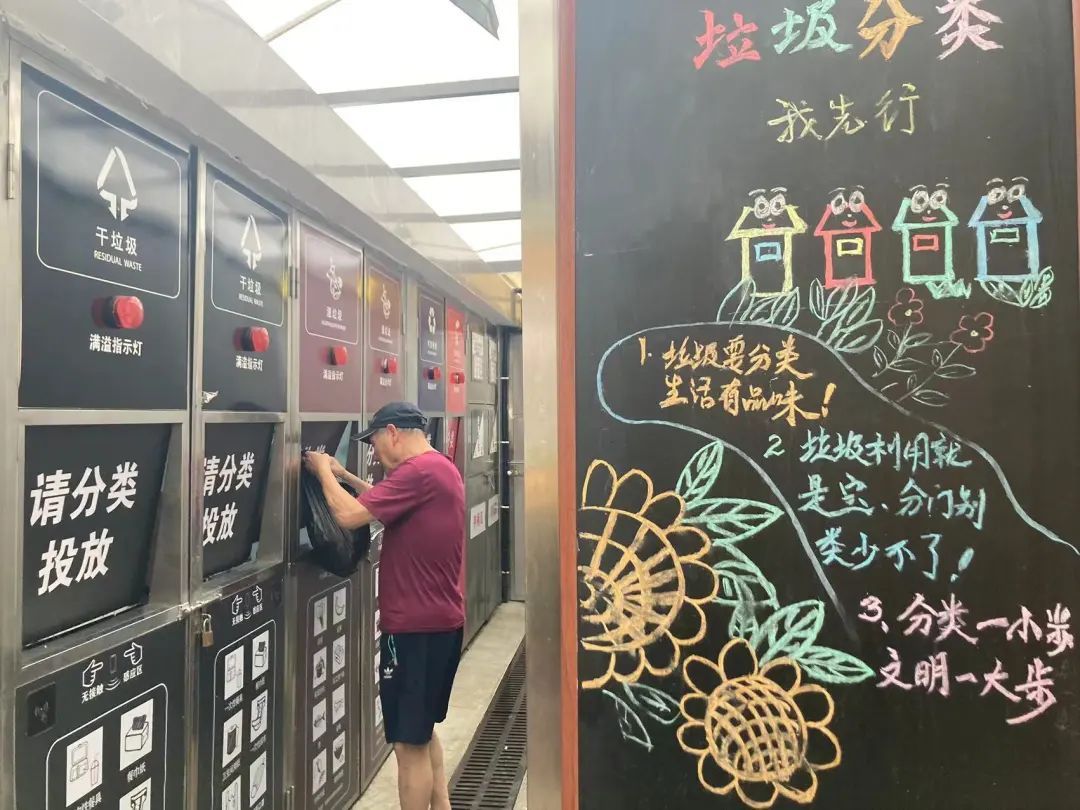 干垃圾
RESIDUAL WASTE
满溢指示灯
请分类
投放
无接触
感应区
餐巾纸
干垃圾
RESIDUAL WASTE
满溢指示灯
请分类
投放
无接触
感应区
湿垃圾
满溢指示灯
垃圾分类
我先行
1.垃圾要分类
生活有品味!
2 垃圾利用就
是宝、分门别
类少不了!
3、分类一小步
文明一大步